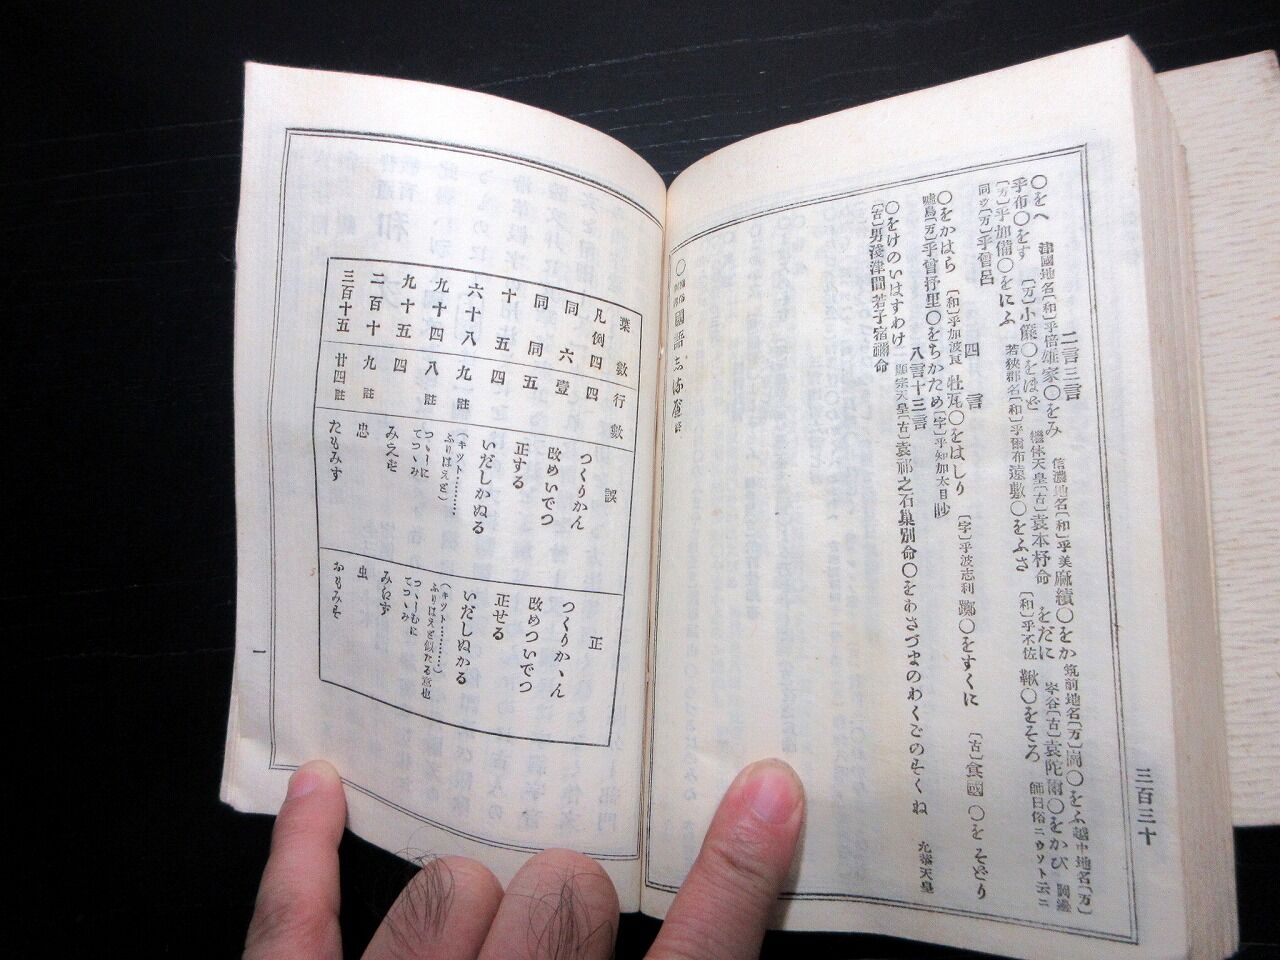 三百三十
二言三言
○をへ 津國地名[和]乎倍雄家○をみ 信濃地名[和]乎美麻績○をか 筑前地名[万]崗○をふ 越中地名[万]
乎布○をす [万]小簾○をほど 繼体天皇[古]袁本杼命 をだに 峑谷[古]袁陀爾○をかび 岡邊
[万]乎加備○をにふ 若狹郡名[和]乎爾布遠敷○をふさ [和]乎不佐 鞦○をそろ 師曰俗ニウソト云ニ
同ジ[万]乎僧呂
四言
○をかはら [和]乎加波良 牡瓦○をはしり [字]乎波志利 躑○をすくに [古]食國 ○をそどり
嘘鳥[万]乎曾抒里○をちかため[字]乎知加太目眇
八言十三言
○をけのいはすわけ 顯宗天皇[古]袁祁之石巢別命○をあさづまのわくごのすくね 允恭天皇
[古]男淺津間若子宿禰命
國語志
葉數 行數 誤 正
凡例四 四 つくりかん つくりかゝん
同六 壹 改めいでつ 改めついでつ
同 同五 正する 正せる
十五 四 いだしかぬる いだしぬかる
六十八 九註 (キツト………ふりはえど) (キツト………)ふりはえど似たる意也
九十四 八註 つゝーにてつゝみ つゝーむにてつゝみ
九十五 四 みえを みえず
二百十 九 忠 虫
三百十五 廿四註 たもみす おもみを
一